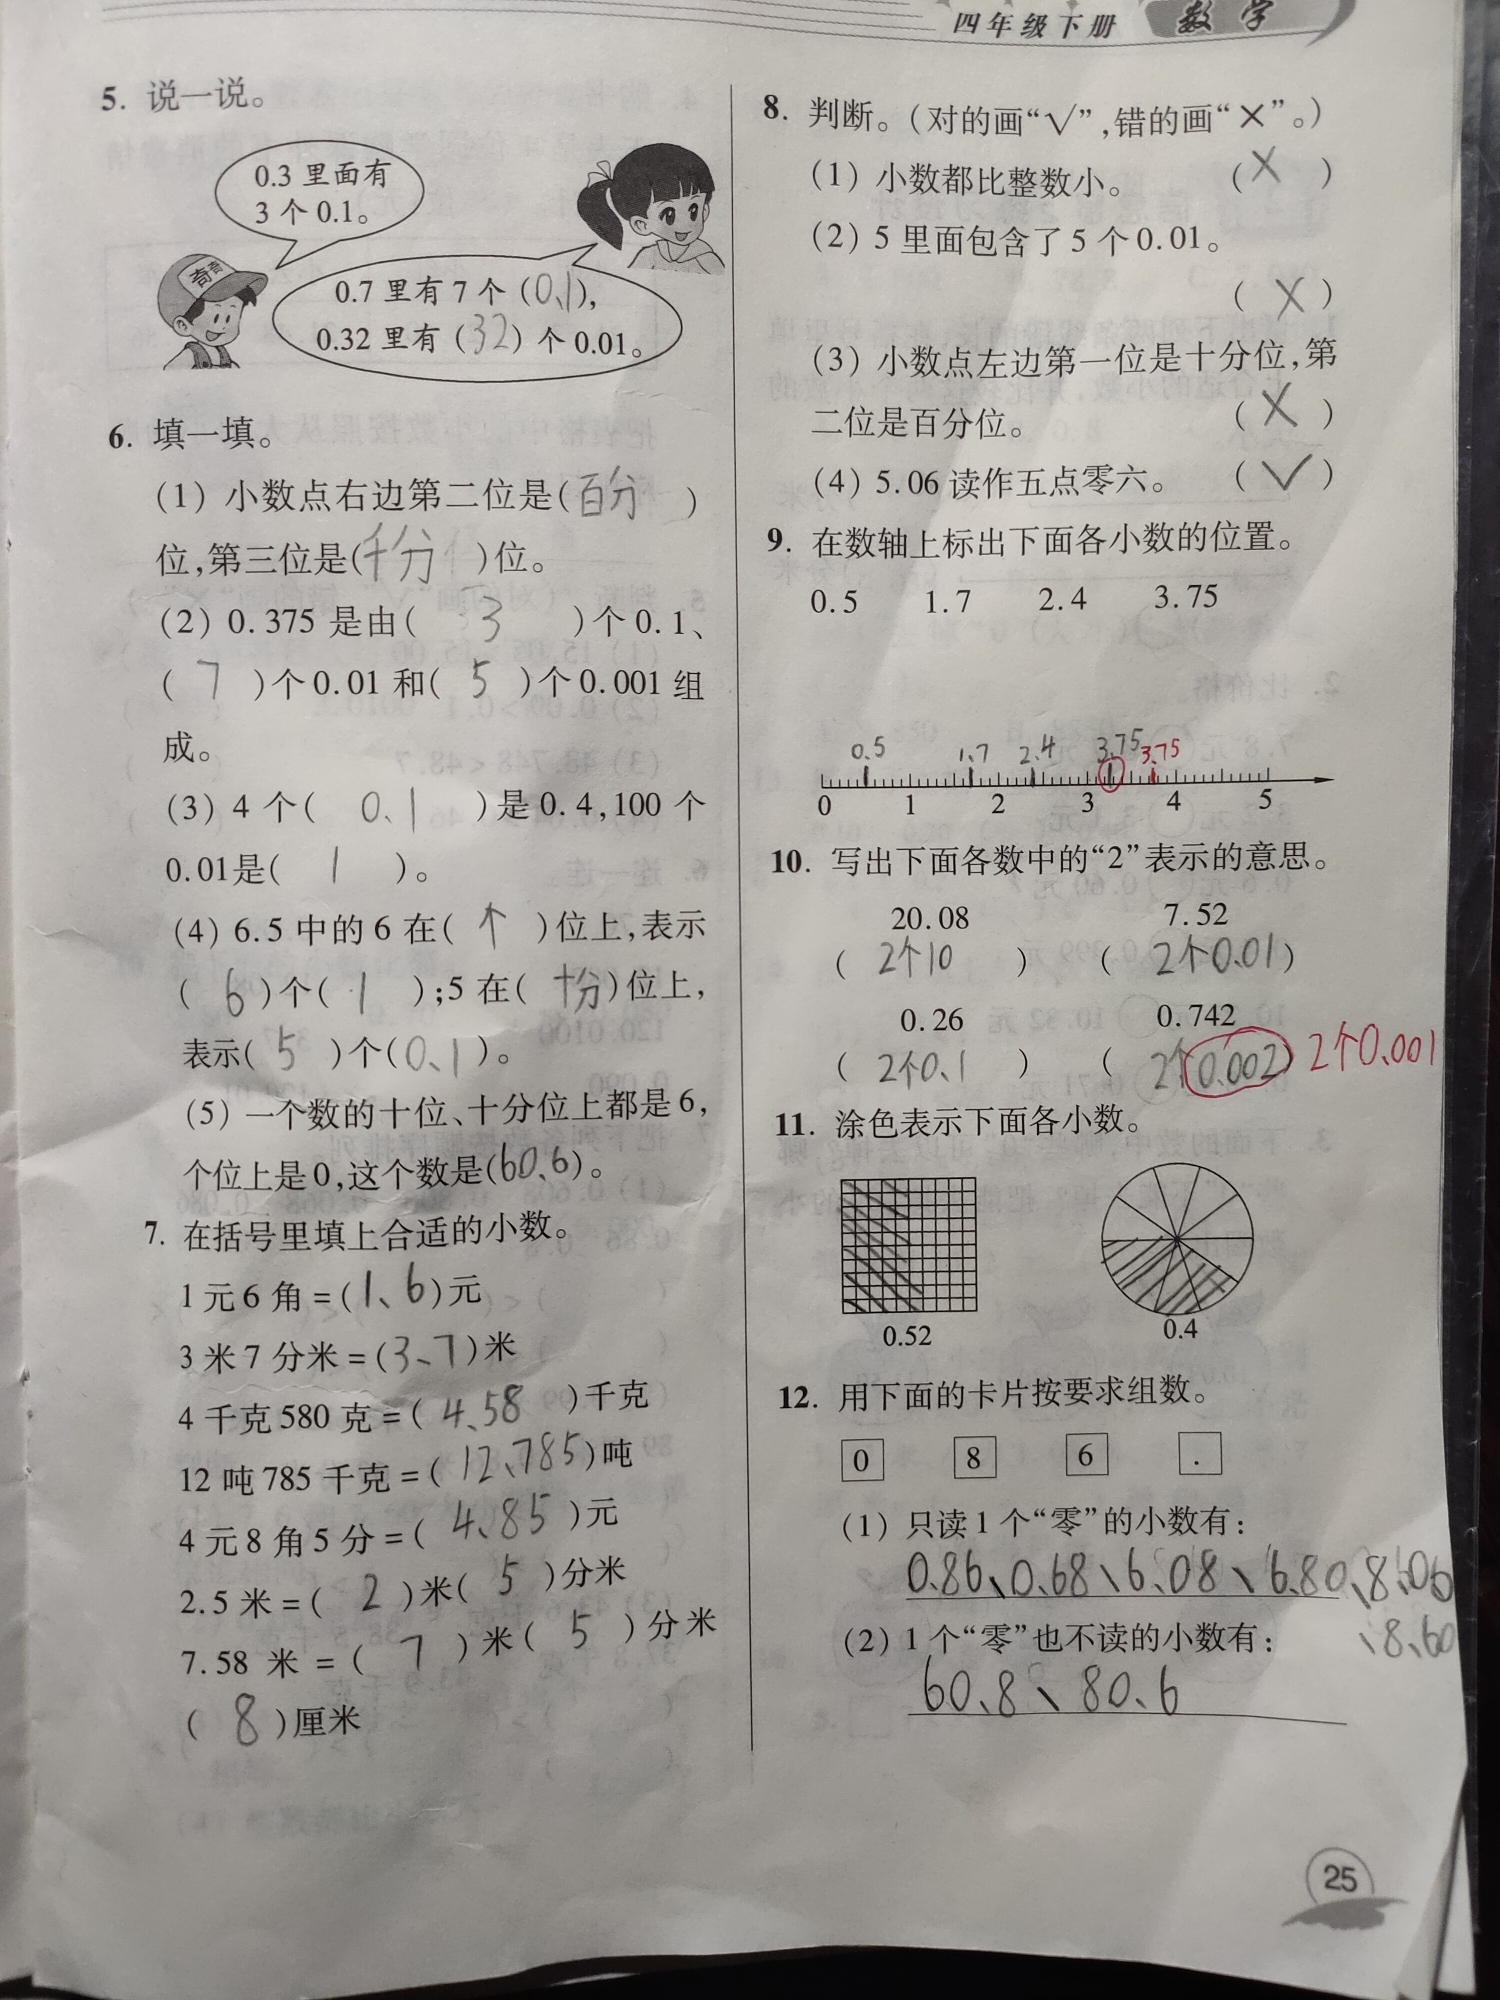 四年级下册 数学
5. 说一说。
0.3 里面有
3 个 0.1。
奇奇
0.7 里有 7 个 (0.1),
0.32 里有 (32) 个 0.01。
6. 填一填。
(1) 小数点右边第二位是(百分)
位,第三位是(千分)位。
(2) 0.375 是由( 3 )个 0.1、
( 7 )个 0.01 和( 5 )个 0.001 组
成。
(3) 4 个( 0.1 )是 0.4,100 个
0.01是( 1 )。
(4) 6.5 中的 6 在( 个 )位上,表示
( 6 )个( 1 );5 在( 十分 )位上,
表示( 5 )个(0.1)。
(5) 一个数的十位、十分位上都是 6,
个位上是 0,这个数是(60.6)。
7. 在括号里填上合适的小数。
1 元 6 角 = (1.6)元
3 米 7 分米 = (3.7)米
4 千克 580 克 = ( 4.58 )千克
12 吨 785 千克 = ( 12.785 )吨
4 元 8 角 5 分 = ( 4.85 )元
2.5 米 = ( 2 )米( 5 )分米
7.58 米 = ( 7 )米( 5 )分米
( 8 )厘米
8. 判断。(对的画“√”,错的画“×”。)
(1) 小数都比整数小。 (×)
(2) 5 里面包含了 5 个 0.01。
(×)
(3) 小数点左边第一位是十分位,第
二位是百分位。 (×)
(4) 5.06 读作五点零六。 (√)
9. 在数轴上标出下面各小数的位置。
0.5 1.7 2.4 3.75
0.5 1.7 2.4 3.75 3.75
0 1 2 3 4 5
10. 写出下面各数中的“2”表示的意思。
20.08 7.52
( 2个10 ) ( 2个0.01)
0.26 0.742
( 2个0.1 ) ( 2个0.002) 2个0.001
11. 涂色表示下面各小数。
0.52 0.4
12. 用下面的卡片按要求组数。
0 8 6 .
(1) 只读 1 个“零”的小数有:
0.86、0.68、6.08、6.80、8.06
、8.60
(2) 1 个“零”也不读的小数有:
60.8、80.6
25